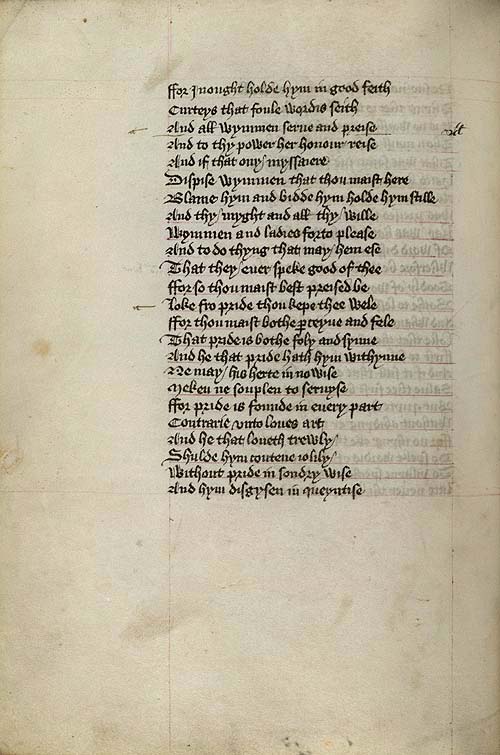 ffor I nought holde hym in good feith
Curteys that foule wordis seith
And all wymmen serue and preise
And to thy power her honour reise
And if that ony myssaiere
Dispise wymmen that thou maist here
Blame hym and bidde hym holde hym stille
And thy myght and all thy wille
Wymmen and ladies forto please
And to do thyng that may hem ese
That they euer speke good of thee
ffor so thou maist best preised be
Loke fro pride thou kepe thee wele
ffor thou maist bothe perceyue and fele
That pride is bothe foly and synne
And he that pride hath hym withynne
Ne may his herte in no wise
Meken ne souplen to seruyse
ffor pride is founde in euery part
Contrarie vnto loues art
And he that loueth trewly
Shulde hym contene iolily
Without pride in sondry wise
And hym disgysen in queyntise